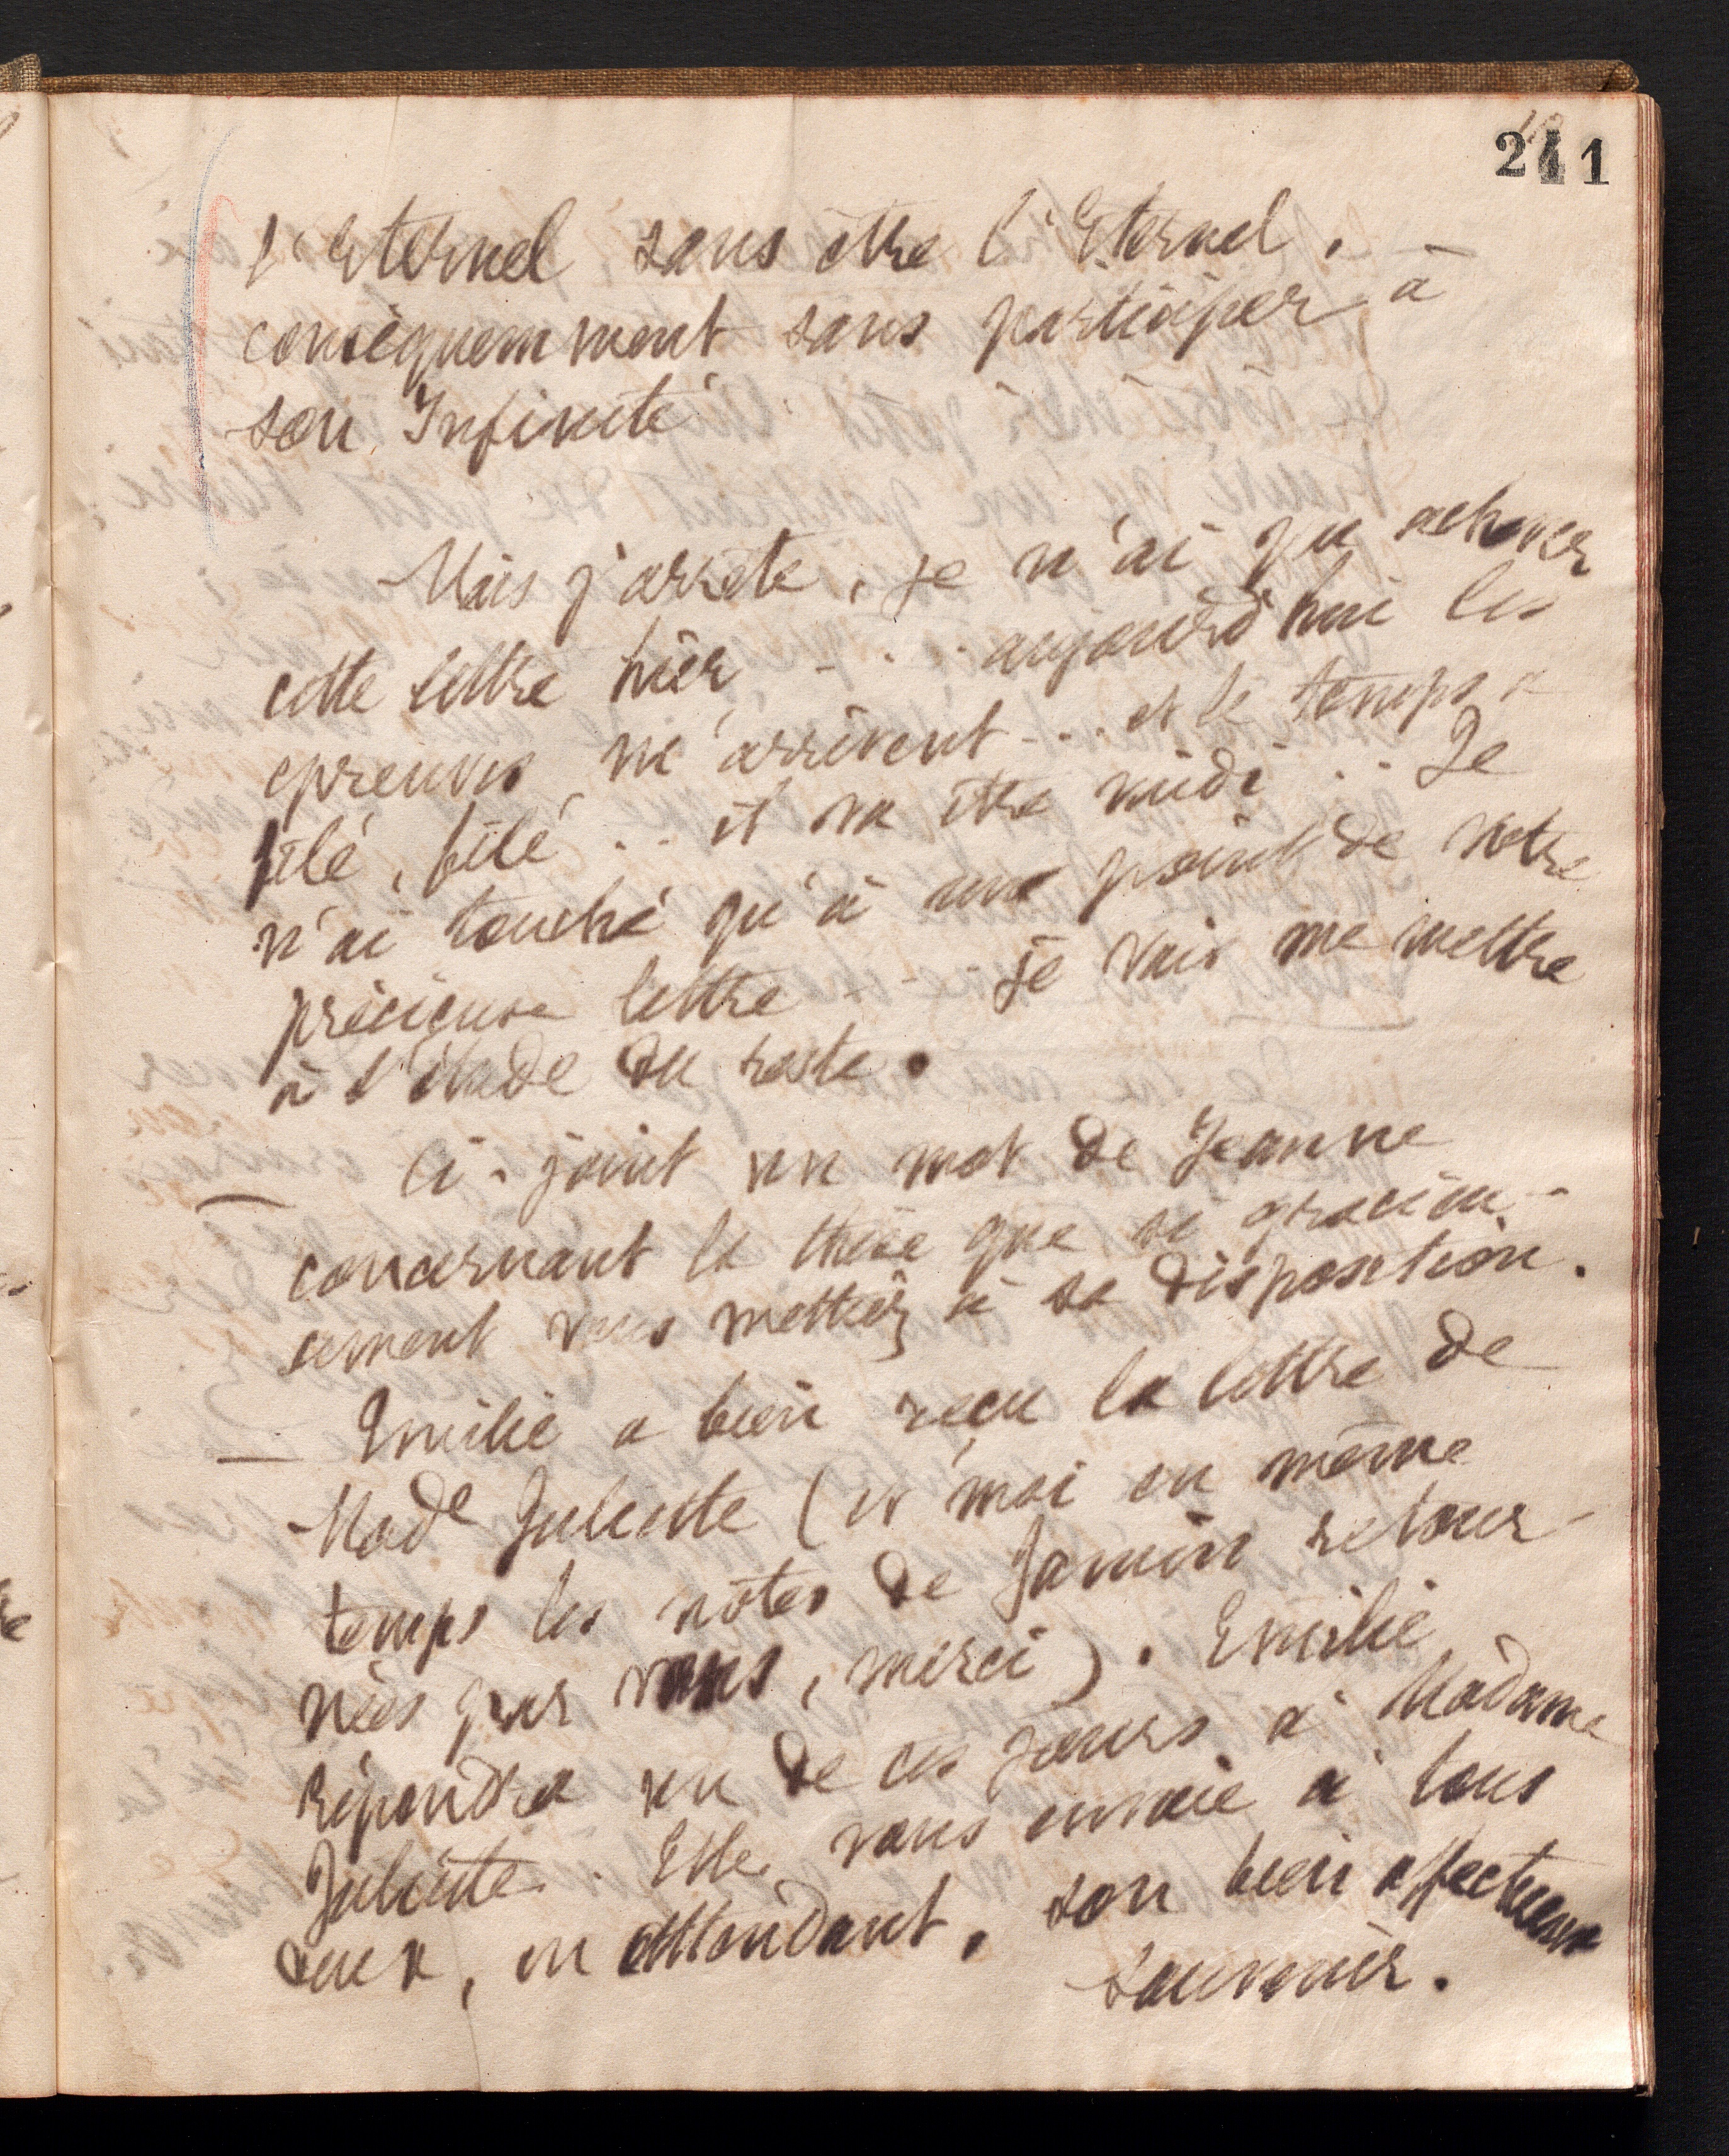 241
l'Eternel sans être l'Eternel,
conséquemment sans participer à
son Infinité
Mais j'arrête, je n'ai pu achever
cette lettre hier - . . aujourd'hui les
epreuves m'arrivent - . . et le temps a
filé, filé . . il va être midi . . Je
n'ai touché qu'à un point de votre
précieuse lettre - - . je vais me mettre
à l'étude du reste.
— Ci-joint un mot de Jeanne
concernant la thèse que si gracieu-
sement vous mettiez à sa disposition.
— Emilie a bien reçu la lettre de
Made Juliette (et moi en même
temps les notes de Jamin retour-
nées par vous, merci). Emilie
répondra un de ces jours à Madame
Juliette. Elle vous envoie à tous
deux, en attendant, son bien affectueux
souvenir.